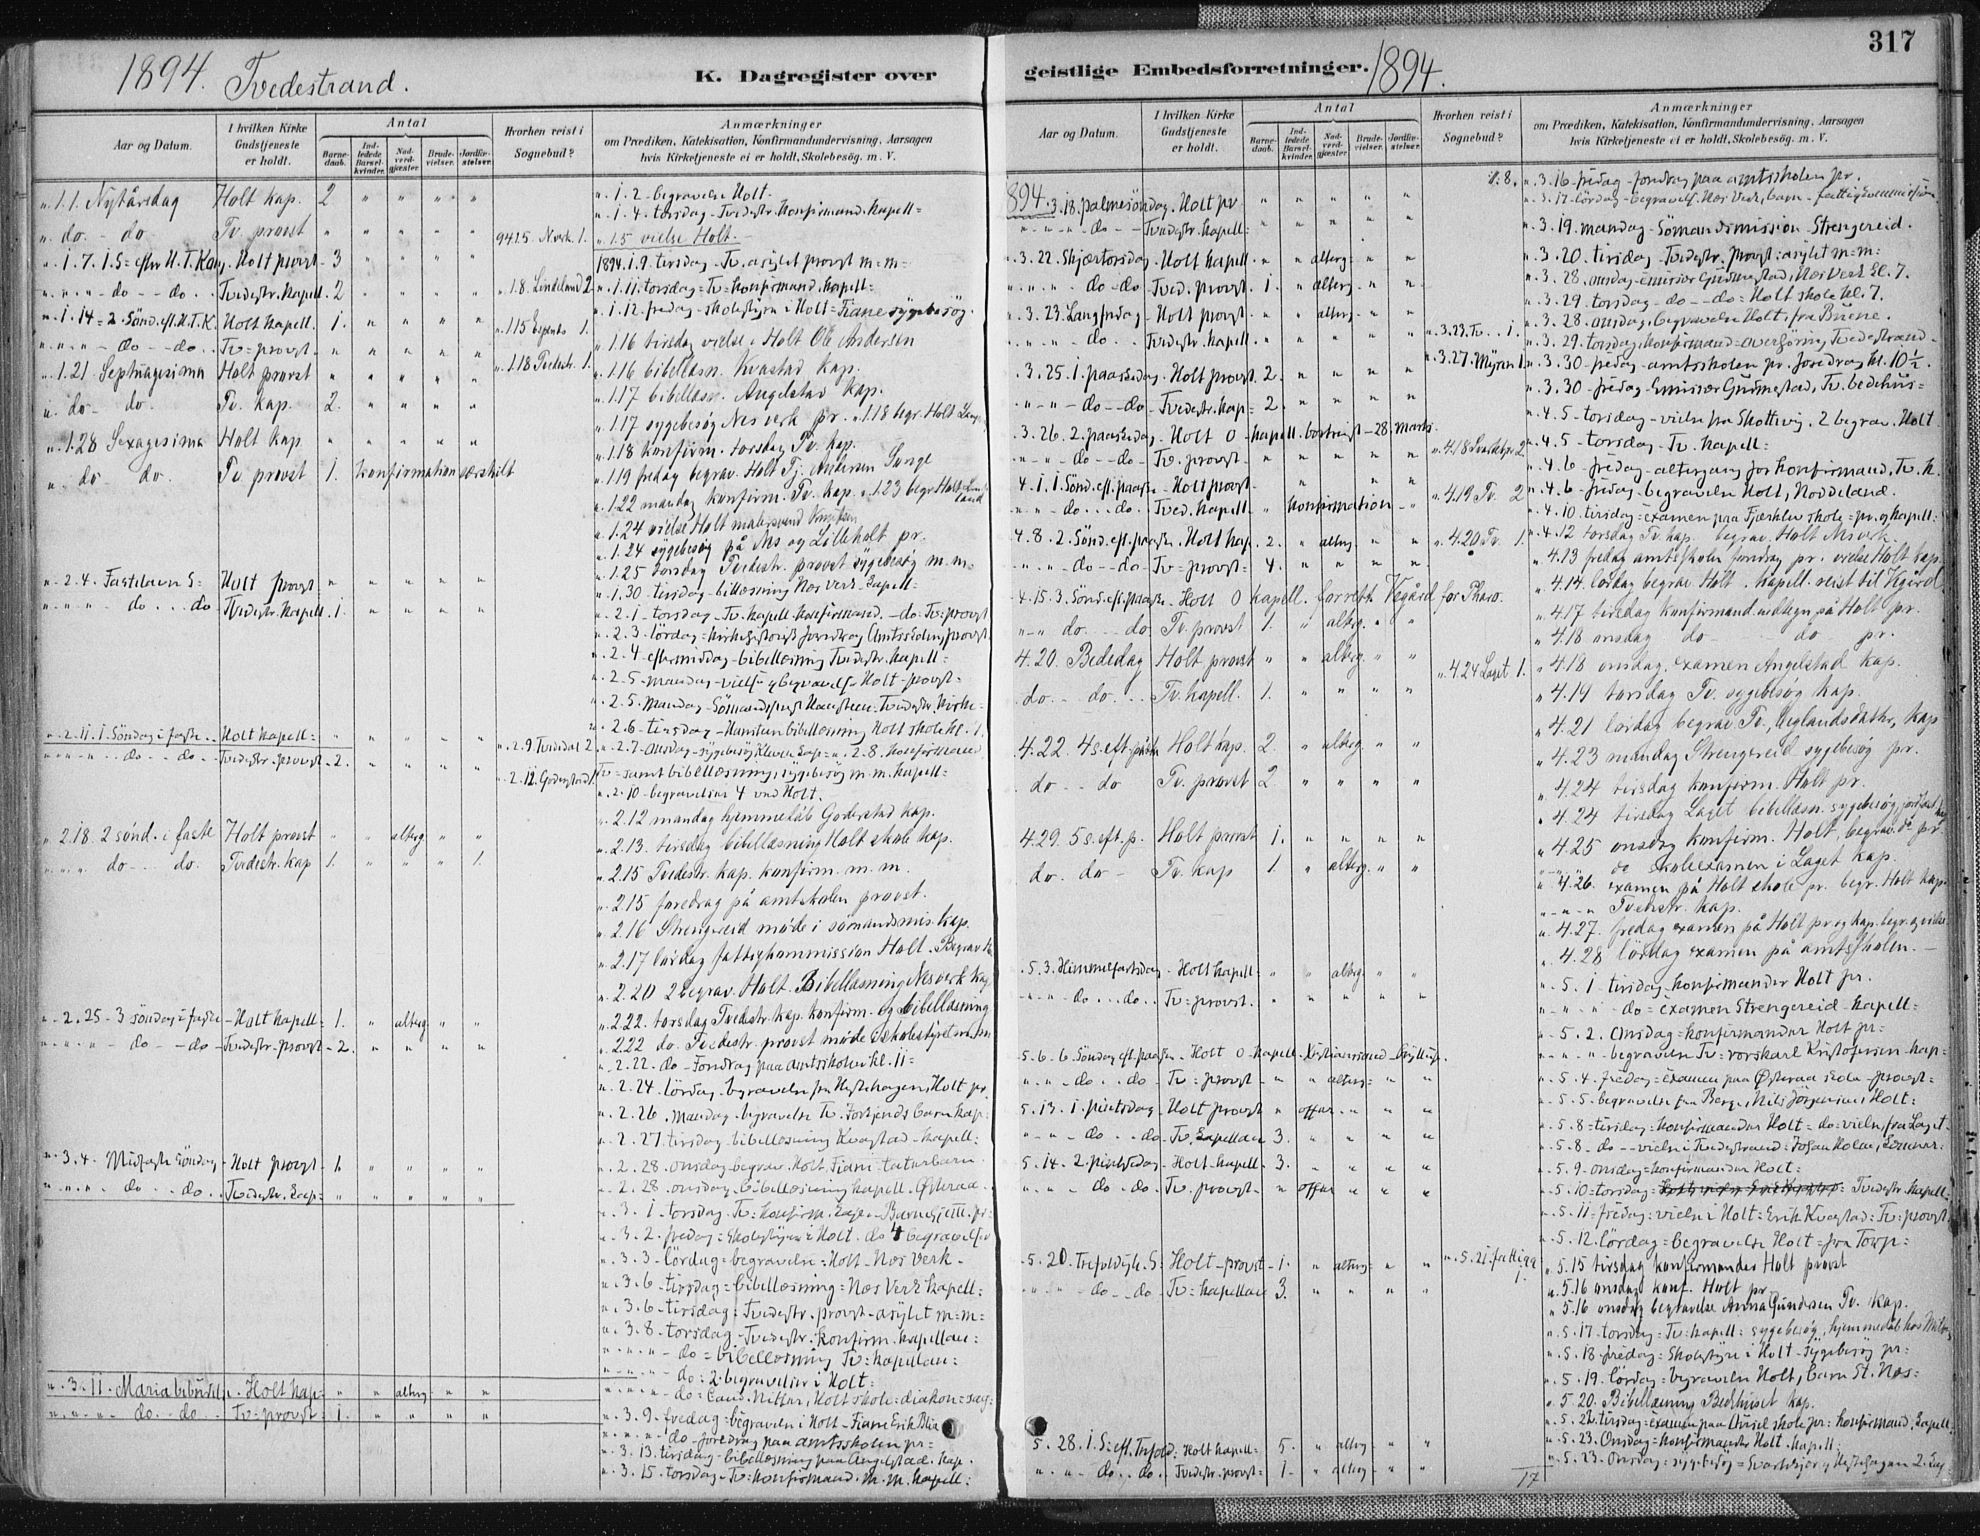 317
1894. Tvedestrand.
K. Dagregister over
geistlige Embedsforretninger.
1894.
Aar og Datum.
I hvilken Kirke Gudstjeneste er holdt.
Antal
Barnedaab.
Indledede Barselkvinder.
Nadverdgjæster
Brudevielser.
Jordfæstelser.
Hvorhen reist i Sognebud?
Anmærkninger
om Prædiken, Katekisation, Konfirmandundervisning, Aarsagen
hvis Kirketjeneste ei er holdt, Skolebesög. m. V.
" 1.1. Nytårsdag Holt kap. 2 " " " "
" do. - do Tv. provst " " " " "
" 1.7. 1.S= efter H.T.Kong. Holt provst - 3 " " " "
" " " - do - - do . . Tvedestr. kapell. 2 " " " "
" 1.14 = 2. Sönd. ef. H.T.K. Holt kapell. 1. " " " "
" " " - do - - do . . Tv= provst. " " " " "
" 1.21 Septuagesima Holt provst " " " " "
" do - do. Tv. kap. 2. " " " "
" 1.28 Sexagesima Holt kap " " " " "
" do do. Tv. provst 1. konfirmation særskilt
" 2.4. Fastelavns S= Holt provst " " " " "
" " " - do . . . do Tvedestr. kapell. 1. " " " "
" 2.11. 1. Söndag i faste . . Holt kapell= " " " " "
" " " - do - do - Tvedestr. provst - 2. " " " "
" 2.18. 2 sönd. i faste Holt provst " " alterg " "
" " " do - . . do. Tvedestr. kap 1. " " " 1.
" 2.25 - 3 söndag i faste - Holt kapell= 1. " alterg " "
" " " - do - - do - Tvedestr. provst - 2. " " " "
" 3.4. Midfaste söndag - Holt provst - 1. " " " "
" " " do . . do . . Tvedestr. kap= " " " " "
" 3.11. Maria bebud. Holt kap= " " alterg " "
" " " - do - do - Tv= provst - 1. " " " "
" 1.8. Lindeland 2
" 1.18 Tvedestr. 1.
" 2.12. Goderstad 1.
" 1.2. begravelse Holt.
" 1.4. torsdag - Tvedestr. Konfirmand. kapell=
" 1.5 vielse Holt.
1894. 1.9. tirsdag - Tv. asylet provst m=m=
" 1.11. torsdag = Tv= konfirmand. kapell=
" 1.12. fredag - skolestyre i Holt = Fiane sygebesög.
" 1.16 tirsdag vielse i Holt Ole Andersen
" 1.16 bibellæsn. Kvastad kap.
" 1.17 bibellæsn. Angelstad kap.
" 1.17 sygebesög Nesverk pr. " 1.18 begr. Holt
" 1.18 konfirm. torsdag Tv. kap.
" 1.19 fredag begrav. Holt Tj. Andersen Songe
" 1.22 mandag konfirm. Tv. kap. " 1.23 begr. Holt
" 1.24 vielse Holt
" 1.24 sygebesög på Næs og Lilleholt pr.
" 1.25 torsdag Tvedestr. provst sygebesög m.m=
" 1.30. tirsdag - bibellæsning Næs Verk kapell=
" 2.1. - torsdag - Tv. kapell. konfirmand. - do - Tv=provst
" 2.3. lördag = kirkehistorisk foredrag (Amtsskolen) provst
" 2.4 eftermiddag - bibellæsning Tvedestr. kapell=
" 2.5 - mandag - vielse og begravelse Holt - provst=
" 2.5. mandag - Sömandsprest Hansteen = Tvedestr. kirke=
" 2.6 - tirsdag - Hansteen bibellæsning Holt skole kl.
" 2.7 - onsdag - sygebesög Kleven kap= " 2.8. konfirmand
Tv= samt bibellæsning, sygebesög m.m. kapell=
" 2.10 - begravelser 4 ved Holt.
" 2.12 mandag hjemmedåb Goderstad kap.
" 2.13. tirsdag bibellæsning Holt skole kap.
" 2.15 Tvedestr. kap. konfirm. m. m.
" 2.15 foredrag på amtskolen provst.
" 2.16 Strengereid möde i sömandsmis. kap.
" 2.17 lördag fattigkommission Holt. Begrav.
" 2.20 2 begrav. Holt. Bibellæsning Nesverk kap
" 2.22. torsdag Tvedestr. kap. konfirm- og bibellæsning
" 2.22 do. Tvedestr. provst möde i skolestyret m.m
" 2.22 - do - Foredrag paa amtsskolen kl. 11=
" 2.24. lördag - begravelse fra Hestehagen, Holt pr.
" 2.26. mandag - begravelse Tv. barn kap.
" 2.27 tirsdag - bibellæsning Kvastad - kapell:
" 2.28. onsdag begrav. Holt, Fiane - taterbarn.
" 2.28. onsdag - bibellæsning kapell. Østeraa.
" 3.1. torsdag - Tv= konfirm. kap.
" 3.2. fredag = skolestyre i Holt. do 4 begravelser
" 3.3. lördag = begravelse = Holt - Næs Verk -
" 3.6. tirsdag = bibellæsning = Næs Verk kapell:
" 3.6 - tirsdag = Tvedestr. provst - asylet m=m:
" 3.8 - torsdag - Tvedestr. konfirm. kapellan=
" " " - do = bibellæsning Tv= kapellan:
" " " - do = 2. begravelser i Holt:
" " " - do = Cand. Nitter, Holt skole = diakon = sag:
" 3.9 - fredag = begravelse i Holt - Fiane Erik
" " " - do - foredrag paa amtsskolen pr=
" 3.13. tirsdag - bibellæsning paa Angelstad. kap.
" 3.15. torsdag - Tv= konfirmand. m. m. kapell:
Aar og Datum.
I hvilken Kirke Gudstjeneste er holdt.
Antal
Barnedaab.
Indledede Barselkvinder.
Nadverdgjæster
Brudevielser.
Jordfæstelser.
Hvorhen reist i Sognebud?
Anmærkninger
om Prædiken, Katekisation, Konfirmandundervisning, Aarsagen
hvis Kirketjeneste ei er holdt, Skolebesög. m. V.
1894. 3.18. palmesöndag. Holt pr. " " " " "
" " " - do - - Tvedestr. kapell= " " " " "
" 3.22. Skjærtorsdag - Holt kapell. " " alterg - " "
" " " - do - do - Tved. provst. 1. " alterg " "
" 3.23. Langfredag - Holt provst. " " alterg - " "
" " " - do - - Tvedestr. kapell. " " " " "
. 3.25. 1. paaskedag - Holt provst. 2. " " " "
" " - do - do - Tvedestr. kap= 2. " " " "
. 3.26. 2. paaskedag - Holt 0 - kapell. bortreist - 28 marts.
" " - do - do - Tv. provst - " " " " "
4.1. 1. Sönd. eft. paaske - Holt provst. " " "
" " - do . . do . Tved. kapell. " konfirmation - "
4.8. 2. Sönd. eft. paaske . Holt kap. 2. " alterg " "
" " - do - do - Tv= provst= 4. " " " "
4.15. 3. Sönd. eft. paaske - Holt 0 kapell. forrett. Vegård for Pharo.
" " do. - - do Tv. provst 1. " alterg. " "
4.20. Bededag Holt. provst " " alterg. " "
do - do . . Tv. kapell. 1. " " " "
4.22. 4 s. eft. påske Holt kap. 2. " alterg. " "
do - - do Tv. provst 2. " " " "
4.29. 5 s. eft. p. Holt provst 1. " " " "
do. do - Tv. kap 1. " alterg. " "
. 5.3. Himmelfartsdag - Holt kapell= " " alterg. " "
" " - do . . . do . . Tv= provst. " " " " "
. 5.6. 6. Söndag eft. paaske - Holt 0 kapell. Kristianssand
" " - do . . do - Tv= provst - " " alterg= " "
5.13. 1. pintsdag - Holt provst " " offer - " "
" " - do . . do - Tv. kapellan 3. " " " "
5.14. 2. pintsedag - Holt - kapell - 3. " " " "
" " - do - do. Tv. provst - " " offer " "
. 5.20. Trefoldigh. S= Holt - provst - 1. " alterg= " "
" " " - do - - do - Tv= kapellan 3. " " " "
5.28. 1. S= eft. Trefold: Holt kapell= 5. " alterg - "
" " - do . . do . Tvedestr. provst= 1 - " alterg - "
" 3.23. Tv. . . 1.
" 3.27. Myran 1.
" 4.19. Tv. 2
" 4.20. Tv. 1.
" 4.24 Laget 1.
" 3.16 fredag - foredrag paa amtsskolen pr.
" 3.17 - lördag - begravelse Næs Verk, barn - fattigkommission
" 3.19. mandag - Sömandsmission - Strengereid.
" 3.20. tirsdag - Tvedestr. provst: asylet m=m:
" 3.28. onsdag = emissær Gudmestad, Næs Verk kl. 7.
" 3.29. torsdag - do - - do = Holt skole kl. 7.
" 3.28. onsdag, begravelse Holt, fra Buene.
" 3.29. torsdag, konfirmand = overhöring Tvedestrand.
" 3.30. fredag - amtsskolen pr. foredrag kl. 10½.
" 3.30 - fredag - Emissær Gudmestad, Tv. bedehus=
" 4.5 - torsdag - vielse fra Skottevig. 2 begrav. Holt
" 4.5 - torsdag - Tv. kapell=
" 4.6 - fredag - altergang for konfirmand. Tv. k.
" 4.6 - fredag - begravelse Holt, Noddeland.
" 4.10. tirsdag = examen paa Fjærkleiv skole = pr. og kapell=
" 4.12 torsdag Tv. kap. begrav. Holt Næsverk.
" 4.13 fredag amtskolen foredrag pr. vielse Holt kap.
" 4.14. lördag begrav. Holt . kapell. reist til Vgård
" 4.17 tirsdag konfirmand. på Holt pr.
" 4.18 onsdag do - do - pr.
" 4.18 onsdag, examen Angelstad kap.
" 4.19 torsdag Tv. sygebesög kap.
" 4.21 lördag begrav. Tv., kap
" 4.23 mandag Strengereid sygebesög pr.
" 4.24 tirsdag konfirm. Holt pr.
" 4.24 tirsdag Laget bibellæsn. sygebesög,
" 4.25 onsdag konfirm. Holt, begrav. do pr.
" " " do skoleexamen i Laget kap.
" 4.26. examen på Holt skole pr. begr. Holt kap.
" " " Tvedestr. kap.
" 4.27. fredag examen på Holt pr. og kap. begr. og vielse
" 4.28 lördag examen på amtsskolen. -
" 5.1 - tirsdag - konfirmander Holt pr.
" " " - do = examen Strengereid - kapell=
" 5.2. Onsdag = konfirmander Holt pr=
" " " - begravelse Tv= Kristofersen - kap=
. 5.4. fredag = examen paa Østeraa skole - provst=
. 5.5. begravelse fra Berge, Nils Jörgensen, Holt:
. 5.8 = tirsdag, konfirmander Holt = do = vielse fra Laget.
. 5.8 - do - - vielse i Tvedestrand: Johan Holm,
. 5.9 onsdag = konfirmander Holt:
" 5.10 = torsdag = Tvedestr. kapell=
" 5.11 = fredag: vielse i Holt = Erik Kvastad: Tv= provst.
" 5.12. lördag = begravelse Holt = fra Torp=
" 5.15 tirsdag konfirmander Holt provst
" 5.16 onsdag konf. Holt pr.
" 5.16 onsdag begravelse Anna Gundersen Tv. kap.
" 5.17. torsdag = Tv= kapell: sygebesög, hjemmedåb hos
" 5.18 - fredag = skolestyre i Holt - sygebesög pr:
" 5.19. lördag - begravelse Holt, barn Næs=
" 5.20. Bibellæsning Bedehuset kap.
" 5.22. tirsdag = examen paa skole pr: konfirmand. kapell
" 5.23. Onsdag = konfirmander Holt. kapell:
" 5.23. Onsdag: sygebesög = Svartekjær og Hestehagen 2.
17